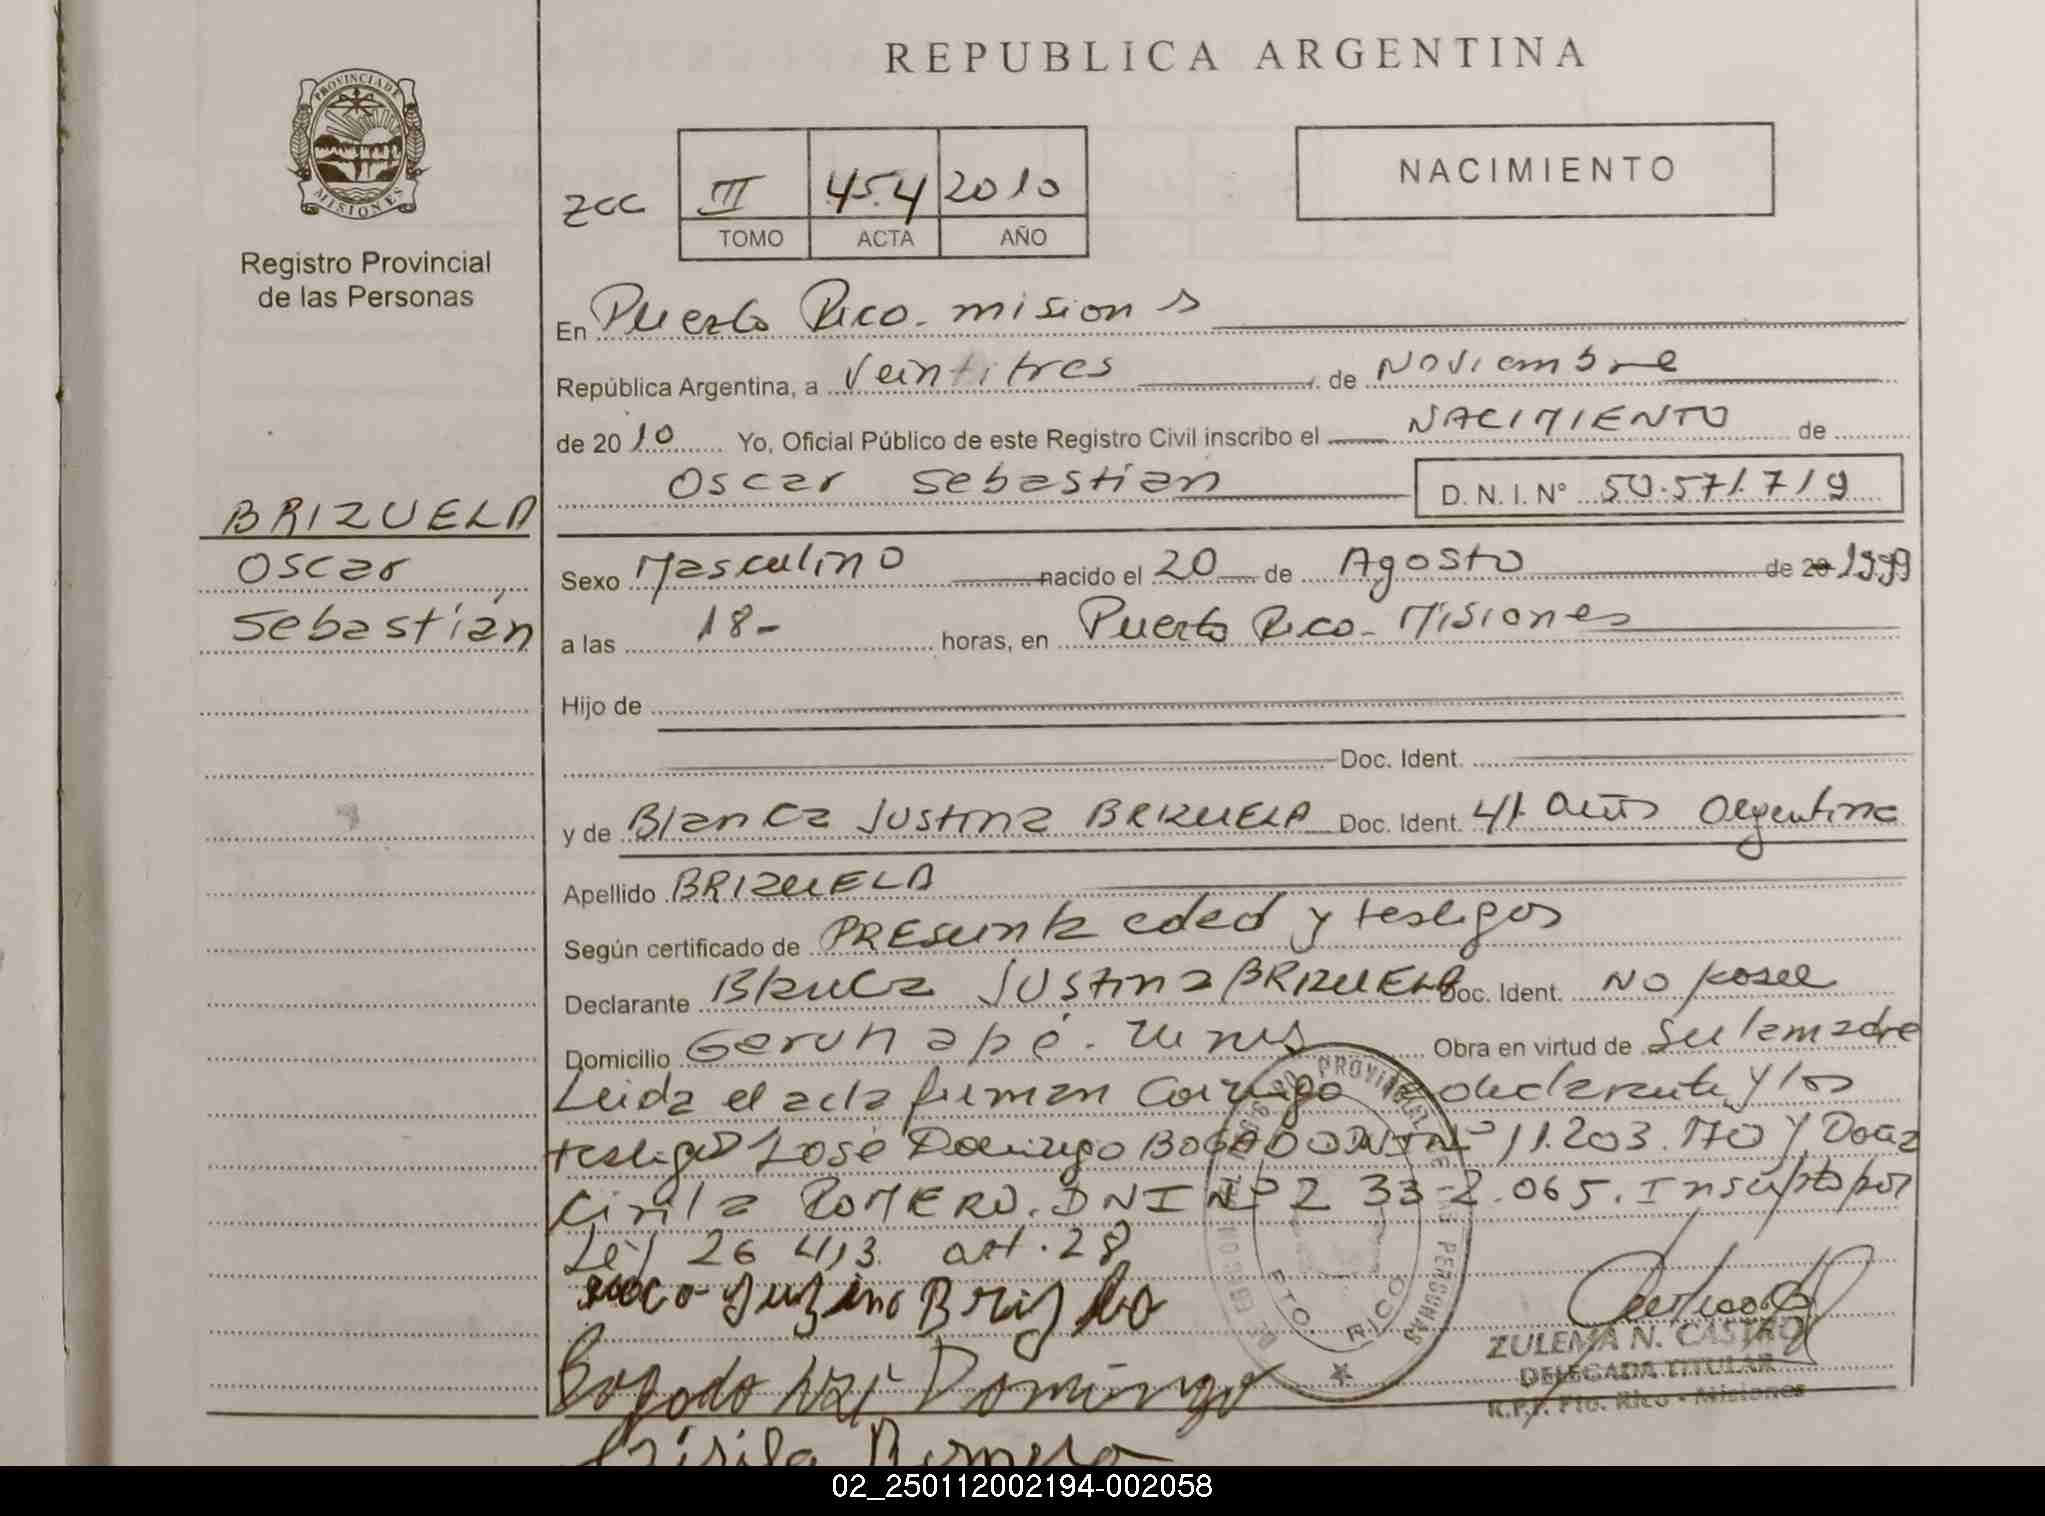 REPUBLICA ARGENTINA
PROVINCIA DE
MISIONES
Registro Provincial
de las Personas
zcc III 454 2010
TOMO ACTA AÑO
NACIMIENTO
En Puerto Rico. misiones
República Argentina, a Veintitres de Noviembre
de 2010 Yo, Oficial Público de este Registro Civil inscribo el NACIMIENTO de
Oscar Sebastian D. N. I. N° 50.571.719
BRIZUELA
Oscar
Sebastián
Sexo Masculino nacido el 20 de Agosto de 20 1999
a las 18- horas, en Puerto Rico - Misiones
Hijo de
Doc. Ident.
y de Blanca Justina BRIZUELA Doc. Ident. 41 años Argentina
Apellido BRIZUELA
Según certificado de PRESunta edad y testigos
Declarante Blanca Justina BRIZUELA Doc. Ident. No posee
Domicilio Garuhapé. Obra en virtud de ser la madre
Leida el acta firman conmigo la declarante y los
testigos José Domingo BOGADO DNI N° 11.203.170 y Doña
Cirila ROMERO. DNI N° 2 332.065. Inscripto por
Ley 26 413. art. 28
Bogado José Domingo
Sirila Romero
REGISTRO PROVINCIAL DE LAS PERSONAS
PTO. RICO
ZULEMA N. CASTRO
DELEGADA TITULAR
R.P.P. Pto. Rico - Misiones
02_250112002194-002058